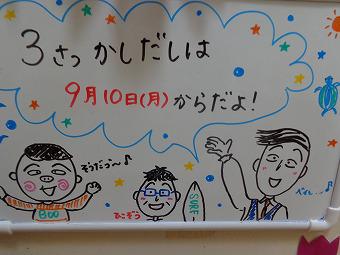 3さつ かしだしは
9月10日(月)からだよ!
そうだっ〜♪
BOO
ひこぞう
SURF